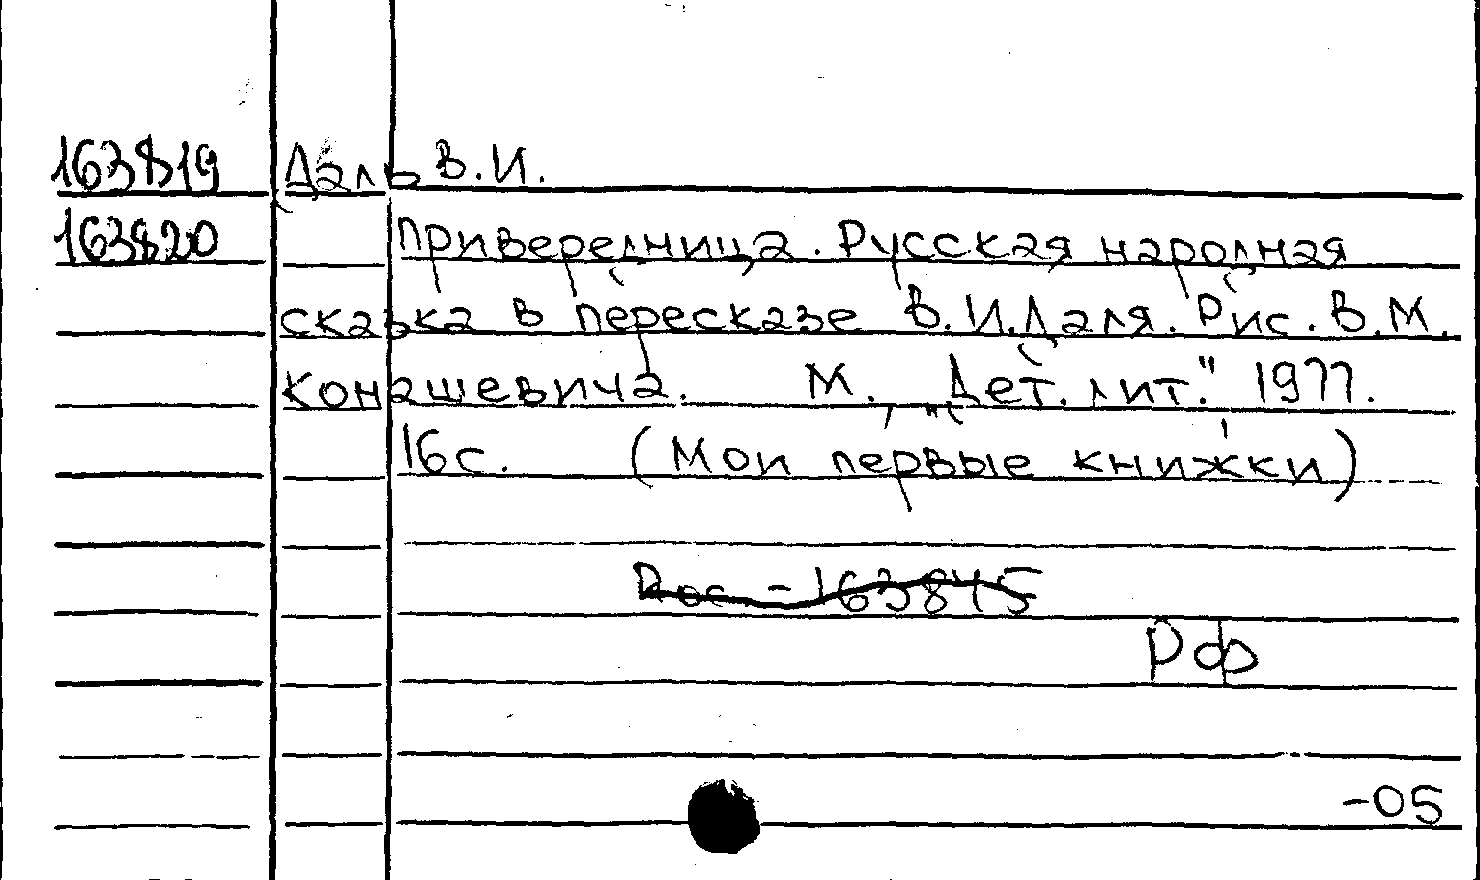 163819 Даль В.И.
163820 Привередница. Русская народная
сказка в пересказе В.И.Даля. Рис. В.М.
Конашевича. М., „Дет. лит." 1977.
16с. (Мои первые книжки)
163845
РФ
-05